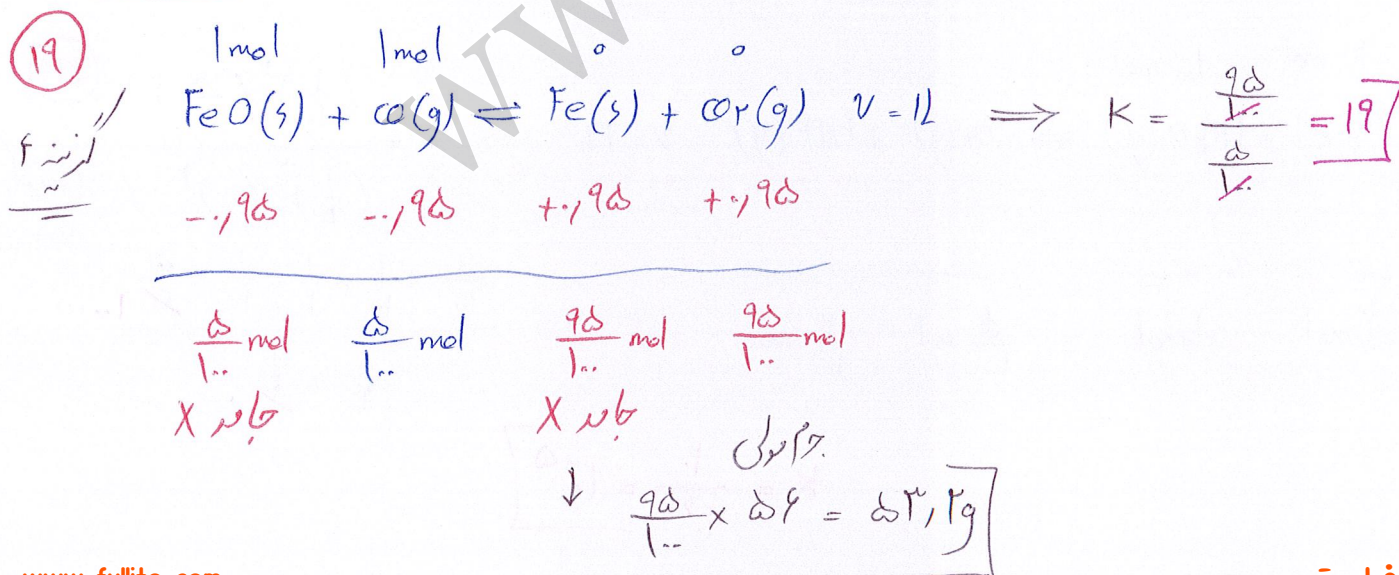 ۱۹
گزینه ۴
1mol 1mol ० ०
FeO(s) + CO(g) ⇌ Fe(s) + CO۲(g) V = 1L ⟹ K = (۹۵/۱۰۰)/(۵/۱۰۰) = ۱۹
-۰,۹۵ -۰,۹۵ +۰,۹۵ +۰,۹۵
۵/۱۰۰ mol ۵/۱۰۰ mol ۹۵/۱۰۰ mol ۹۵/۱۰۰ mol
جامد X جامد X
جرم مولی
↓ ۹۵/۱۰۰ × ۵۶ = ۵۳,۲g